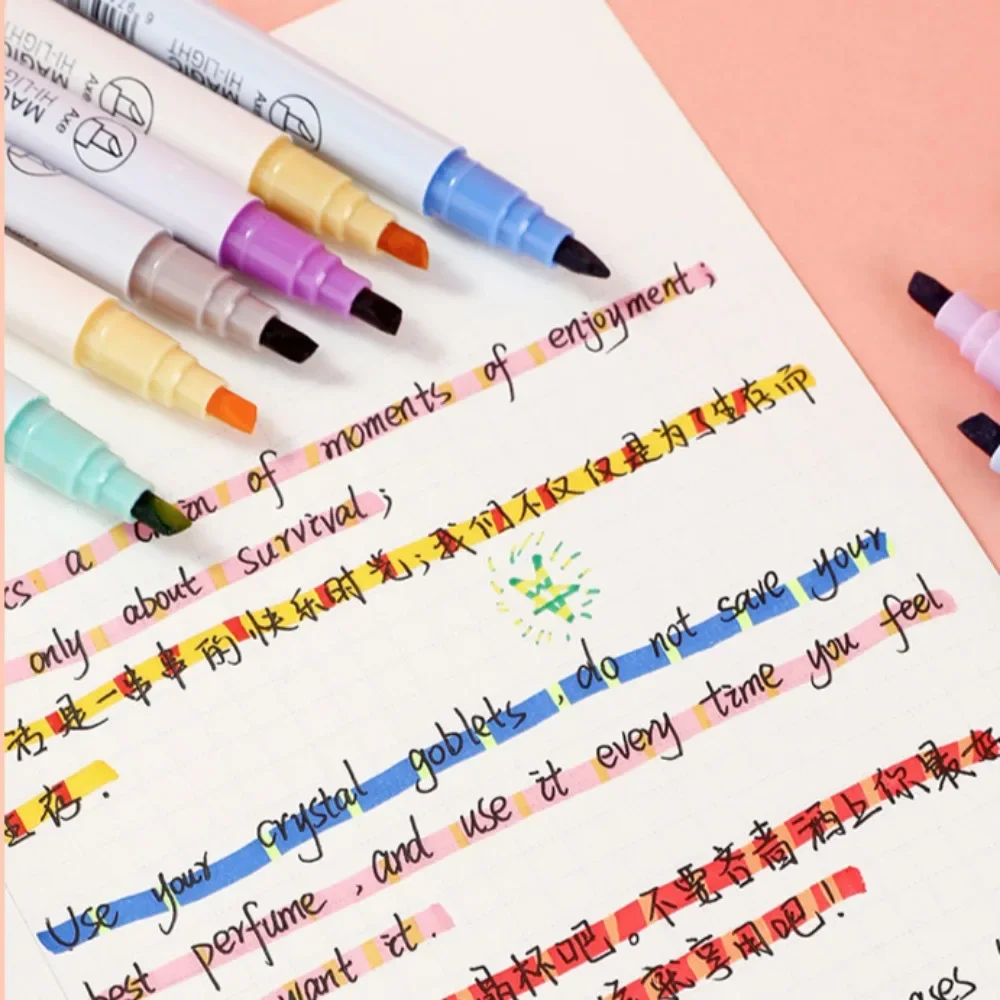 MAGIC
HI-LIGHT
Axe
MAGIC
HI-LIGHT
Axe
MAGIC
HI-LIGHT
Axe
a chain of moments of enjoyment;
only about survival;
活是一串串的快乐时光;我们不仅仅是为了生存而
生存.
Use your crystal goblets, do not save your
best perfume, and use it every time you feel
want it.
晶杯吧。不要吝啬洒上你最好
就享用吧!